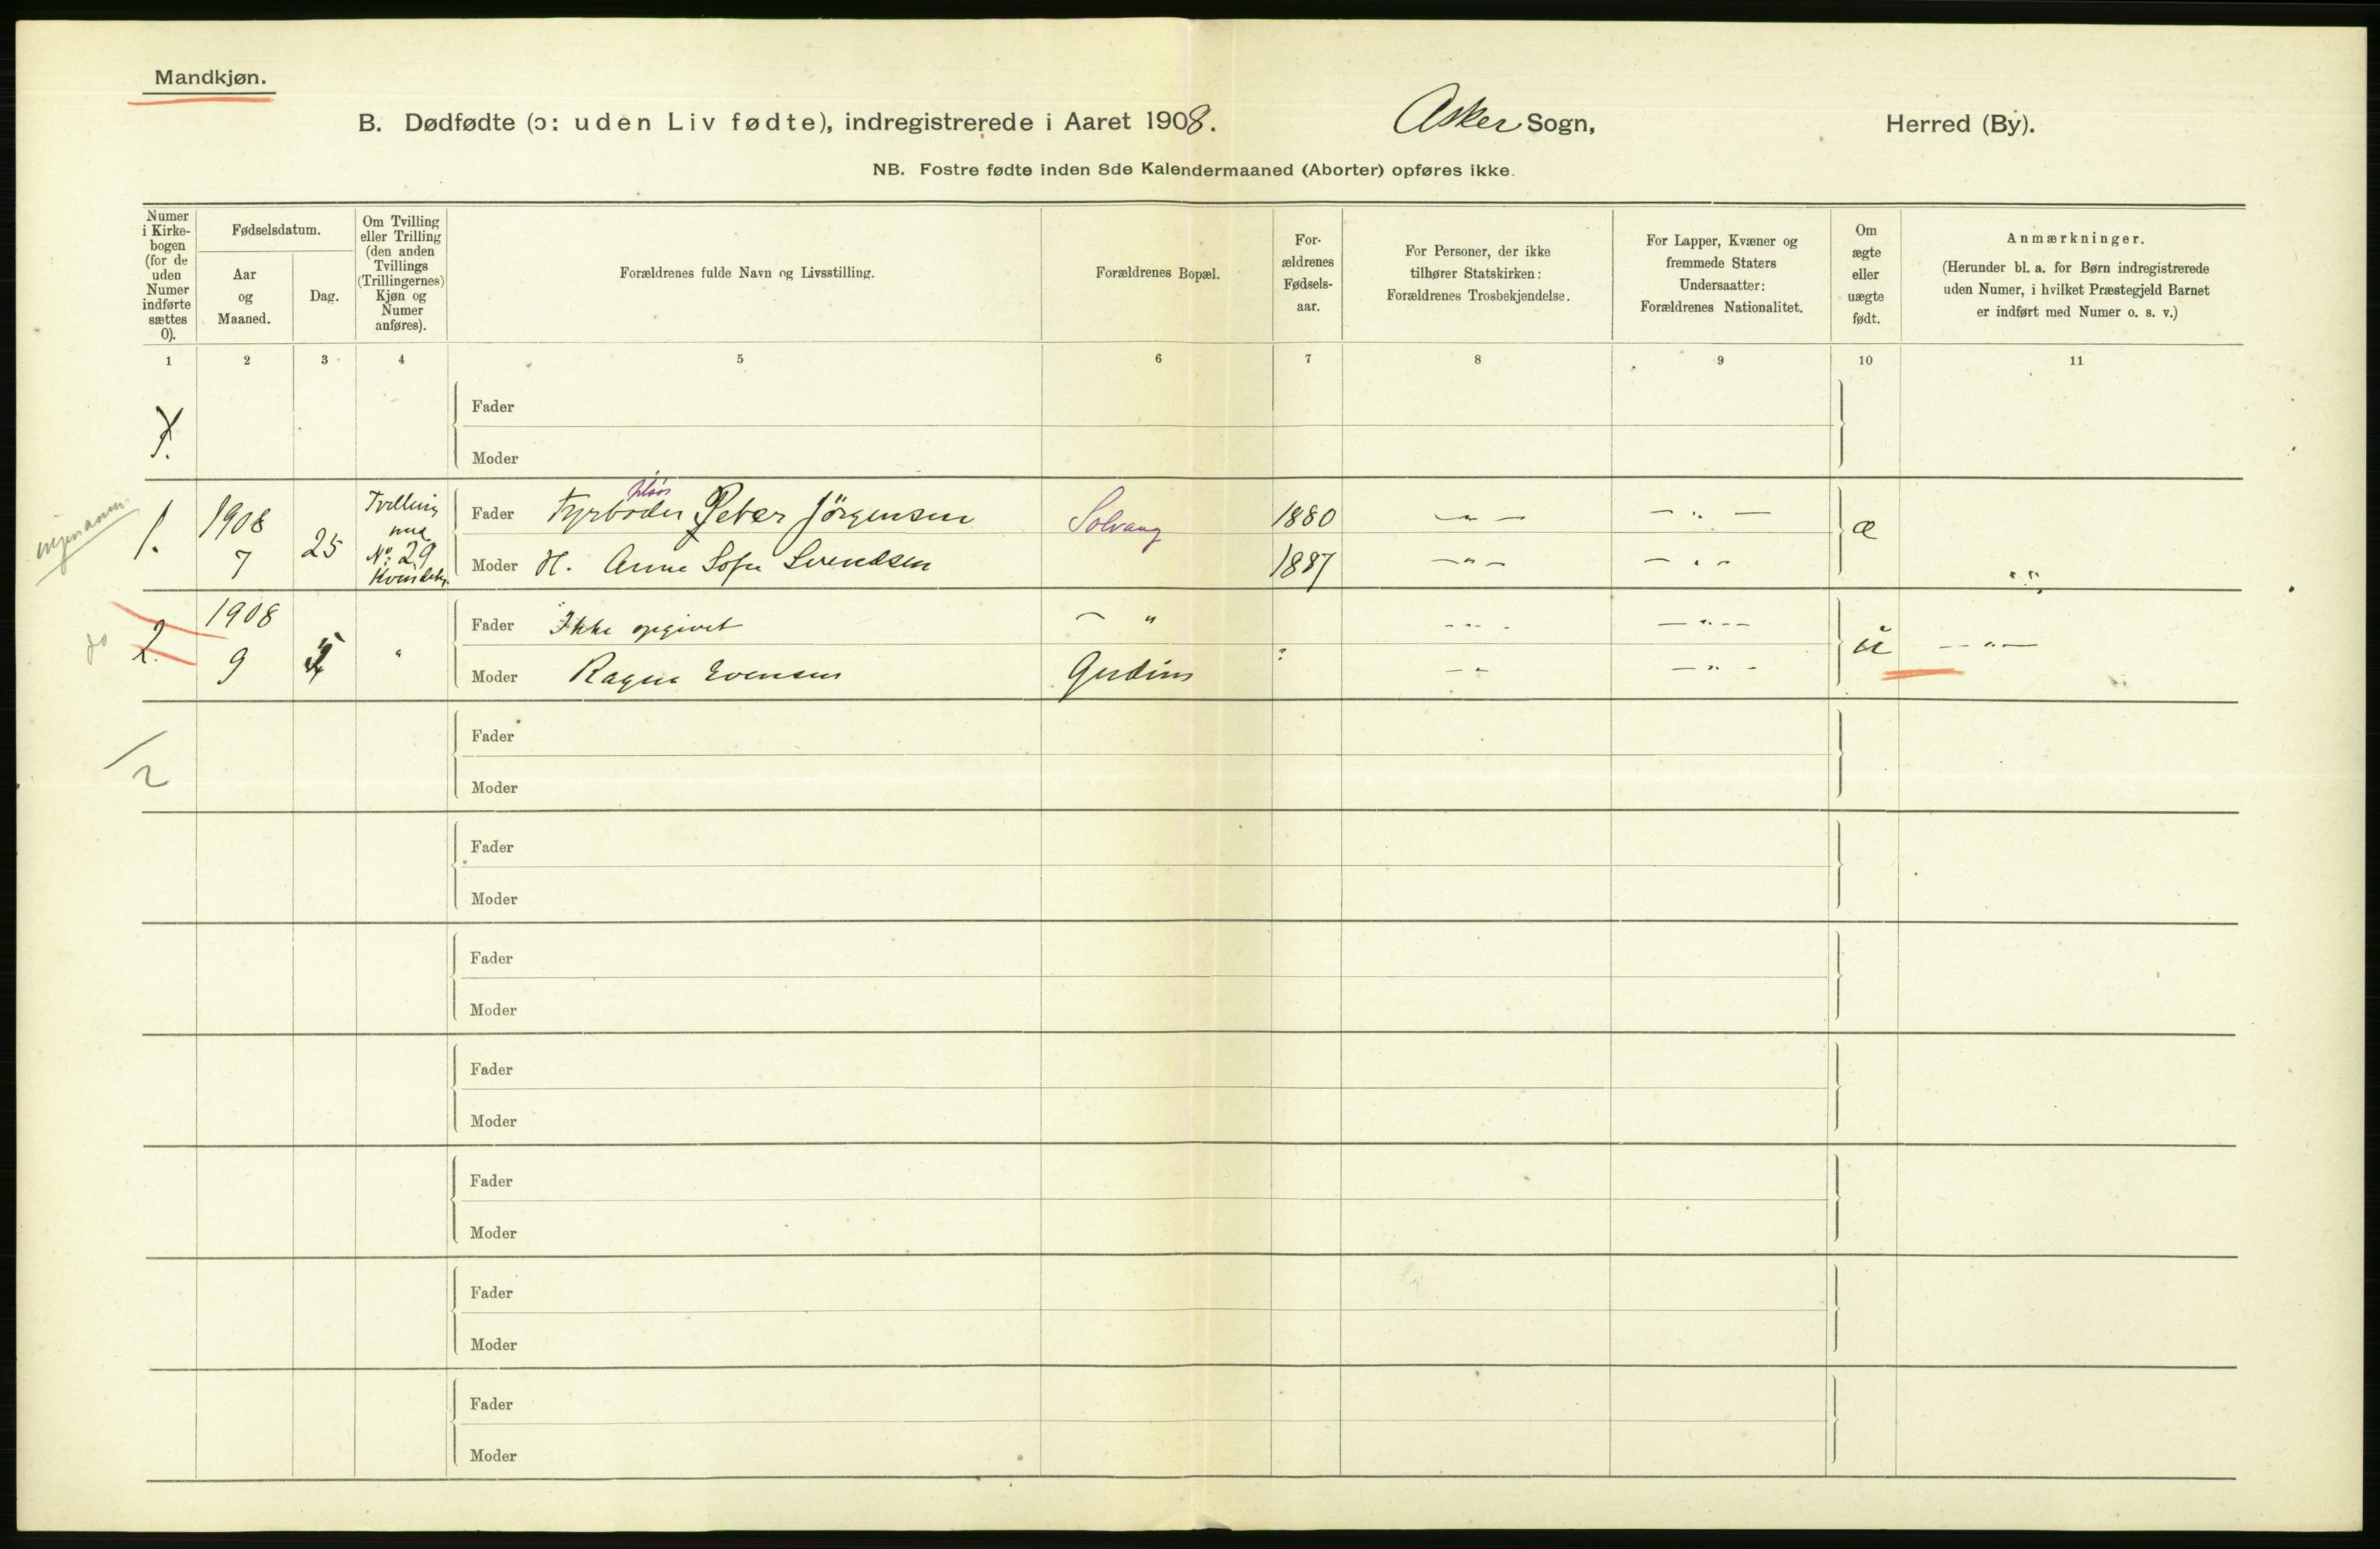 Mandkjøn.
B. Dødfødte (ɔ: uden Liv fødte), indregistrerede i Aaret 1908. Asker Sogn, Herred (By).
NB. Fostre fødte inden 8de Kalendermaaned (Aborter) opføres ikke.
Numer
i Kirke-
bogen
(for de
uden
Numer
indførte
sættes
0).
Fødselsdatum.
Aar
og
Maaned.
Dag.
Om Tvilling
eller Trilling
(den anden
Tvillings
(Trillingernes)
Kjøn og
Numer
anføres).
Forældrenes fulde Navn og Livsstilling.
Forældrenes Bopæl.
For-
ældrenes
Fødsels-
aar.
For Personer, der ikke
tilhører Statskirken:
Forældrenes Trosbekjendelse.
For Lapper, Kvæner og
fremmede Staters
Undersaatter:
Forældrenes Nationalitet.
Om
ægte
eller
uægte
født.
Anmærkninger.
(Herunder bl. a. for Børn indregistrerede
uden Numer, i hvilket Præstegjeld Barnet
er indført med Numer o. s. v.)
1 2 3 4 5 6 7 8 9 10 11
Fader
Moder
1. 1908 7 25
Tvilling
med
No. 29
Kvindekj.
Fader Fyrbøder Peter Jörgensen Solvang 1880 — " — — " — æ
Moder H. Anna Sofie Svendsen 1887 — " — — " — "
2. 1908 9 "
Fader Ikke opgivet — " — " — — " — u — " —
Moder Ragna Evensen : — " — " —
Fader
2
Moder
Fader
Moder
Fader
Moder
Fader
Moder
Fader
Moder
Fader
Moder
Fader
Moder